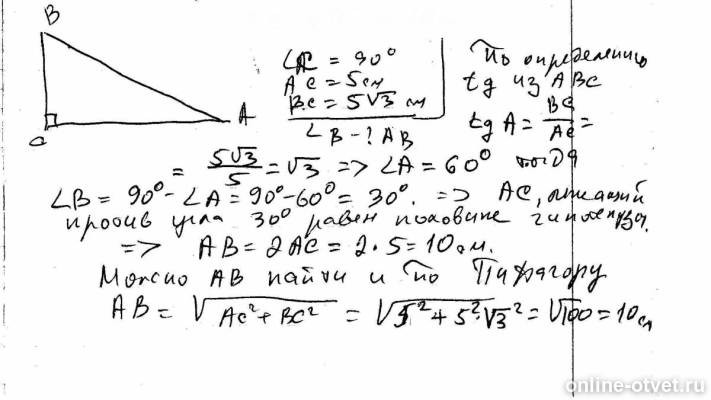 B
C
A
∠C = 90°
AC = 5 см
BC = 5√3 см
∠B - ? AB
По определению
tg из ABC
tg A = BC/AC =
= 5√3/5 = √3 => ∠A = 60° тогда
∠B = 90° - ∠A = 90° - 60° = 30°. => AC, лежащий
против угла 30° равен половине гипотенузы.
=> AB = 2AC = 2 • 5 = 10 см.
Можно AB найти и по Пифагору
AB = √AC² + BC² = √5² + 5²·√3² = √100 = 10 см
online-otvet.ru